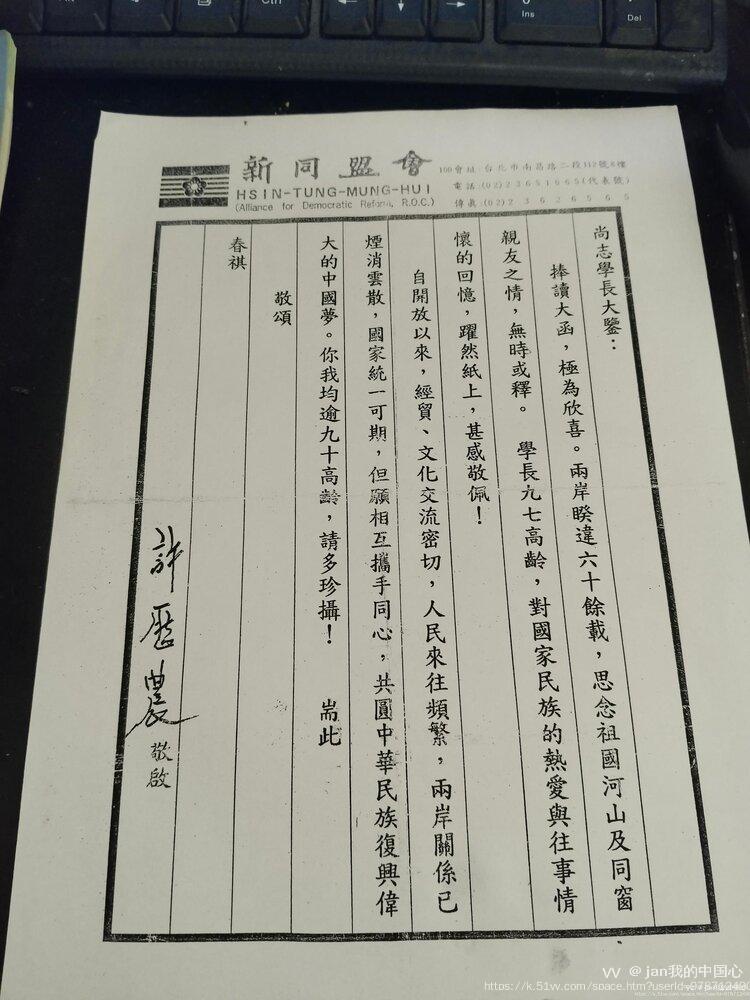 新同盟會
HSIN-TUNG-MUNG-HUI
(Alliance for Democratic Reform, R.O.C.)
100會址:台北市南昌路二段112號8樓
電話:(02)23651665(代表號)
傳真:(02)23626565
尚志學長大鑒：
捧讀大函，極為欣喜。兩岸睽違六十餘載，思念祖國河山及同窗
親友之情，無時或釋。　學長九七高齡，對國家民族的熱愛與往事情
懷的回憶，躍然紙上，甚感敬佩！
自開放以來，經貿、文化交流密切，人民來往頻繁，兩岸關係已
煙消雲散，國家統一可期，但願相互攜手同心，共圓中華民族復興偉
大的中國夢。你我均逾九十高齡，請多珍攝！　耑此
敬頌
春祺
許歷農 敬啟
Ctrl
Ins
Del
@ jan我的中国心